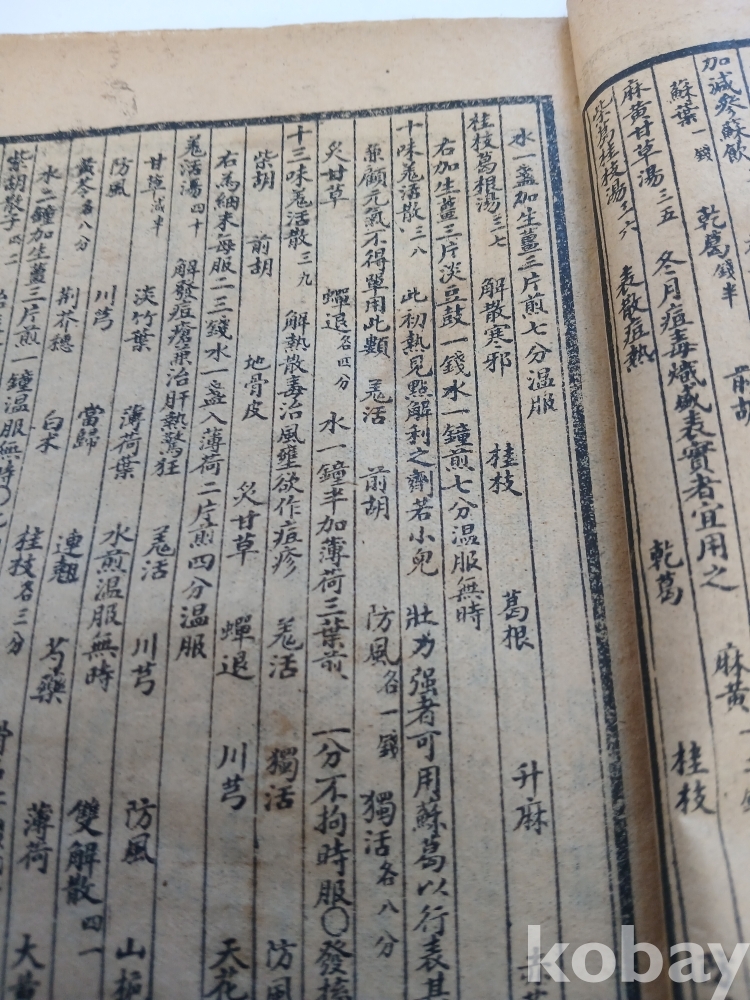 加減參蘇飲
蘇葉一錢 乾葛錢半 前胡
麻黃甘草湯三五 冬月痘毒熾盛表實者宜用之 麻黃一錢
柴葛桂枝湯三六 表散痘熱 乾葛 桂枝
水一盞加生薑三片煎七分温服
桂枝葛根湯三七 解散寒邪 桂枝 葛根 升麻
右加生薑三片淡豆鼓一錢水一鐘煎七分温服無時
十味羗活散三八 此初熱見點解利之劑若小兒壯力强者可用蘇葛以行表其
兼顧元氣不得單用此類 羗活 前胡 防風各一錢 獨活各八分
炙甘草 蟬退各四分 水一鐘半加薄荷三葉煎一分不拘時服○發
十三味羗活散三九 解熱散毒治風壅欲作痘疹 羗活 獨活 防風
柴胡 前胡 地骨皮 炙甘草 蟬退 川芎 天花
右為細末每服二三錢水一盞入薄荷二片煎四分温服
羗活湯四十 解發痘瘡兼治肝熱驚狂 羗活 川芎 防風 山梔
甘草減半 淡竹葉 薄荷葉 水煎温服無時 雙解散四一
防風 川芎 當歸 連翹 芍藥 薄荷 大黃
黃芩各八分 荊芥穗 白朮 桂枝各三分
水二鐘加生薑三片煎一鐘温服無時○
柴胡
kobay